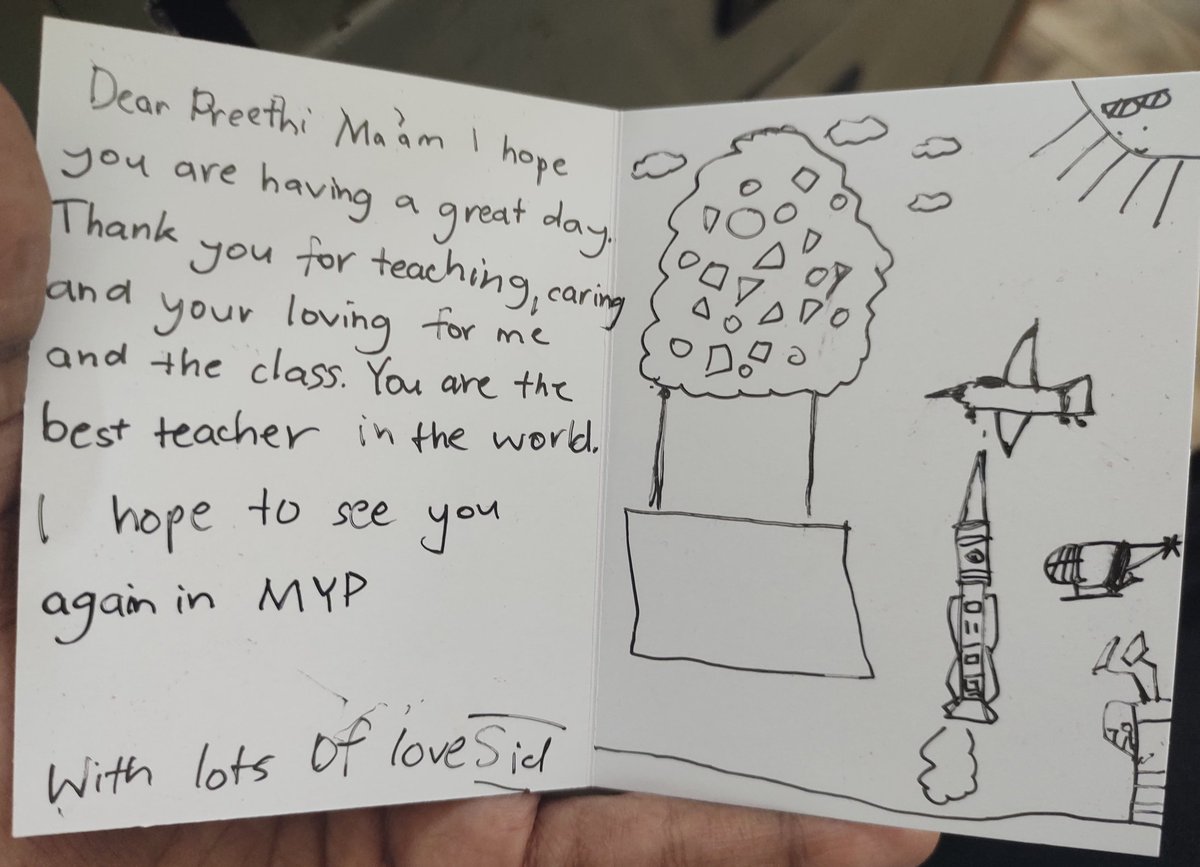 Dear Preethi Ma'am I hope
you are having a great day.
Thank you for teaching, caring
and your loving for me
and the class. You are the
best teacher in the world.
I hope to see you
again in MYP
With lots of love Sid